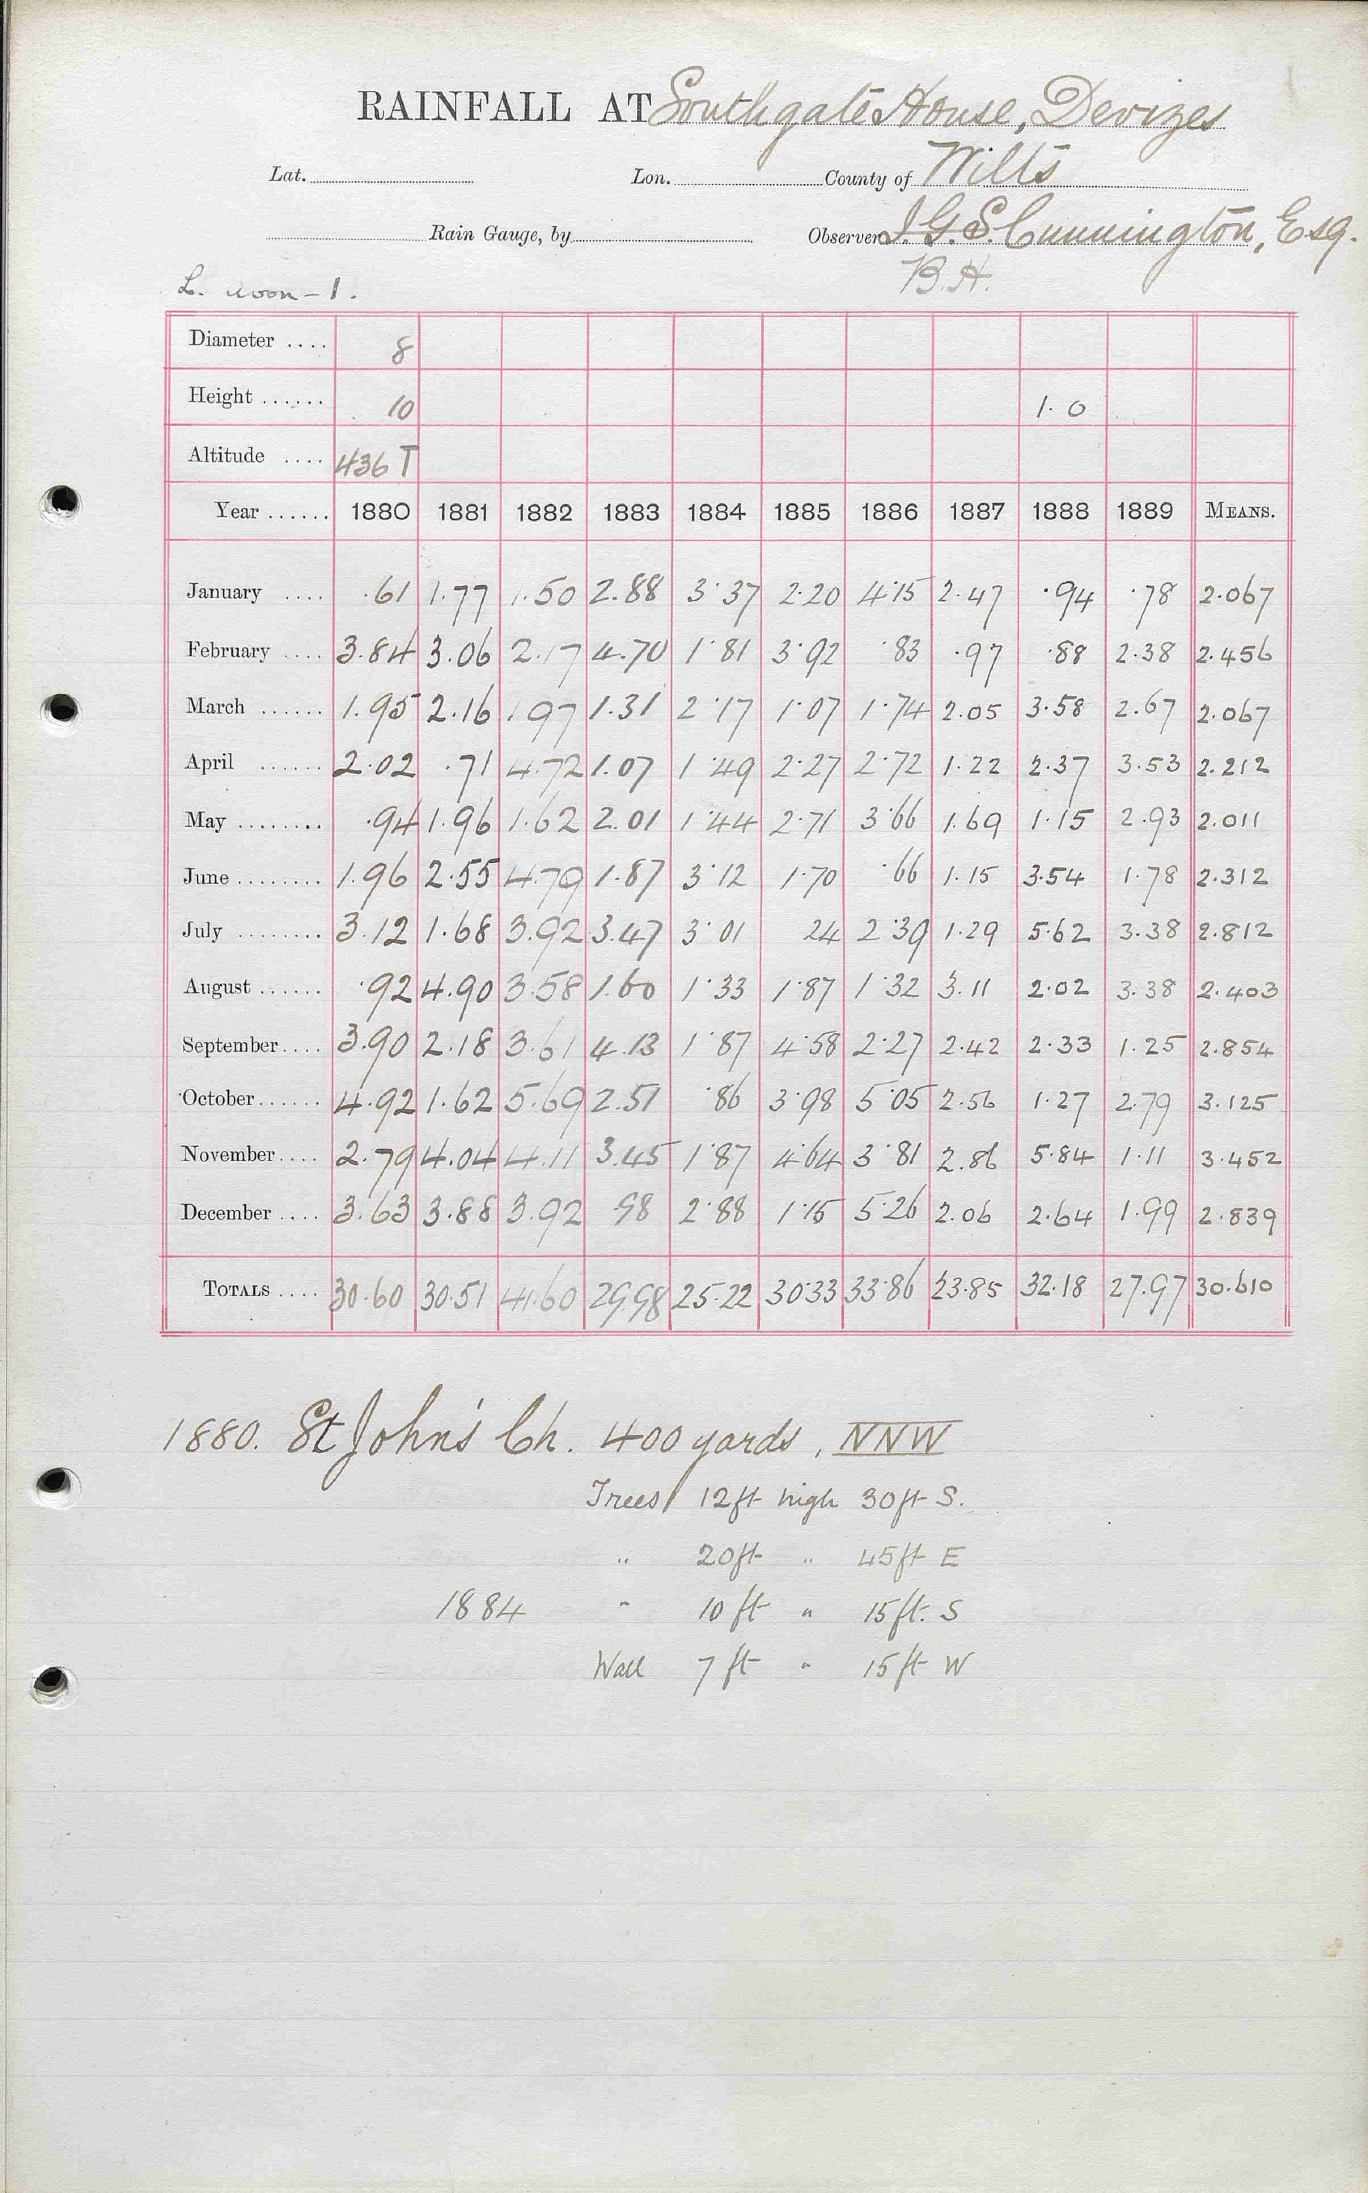 RAINFALL AT Southgate House, Devizes
Lat. Lon. County of Wilts
Rain Gauge, by Observer J. G. S. Cunnington, Esq.
L. Avon - 1. B. H.
Diameter .... 8
Height ...... 10 1. 0
Altitude .... 436 T
Year ...... 1880 1881 1882 1883 1884 1885 1886 1887 1888 1889 MEANS.
January .... .61 1.77 1.50 2.88 3.37 2.20 4.15 2.47 .94 .78 2.067
February .... 3.84 3.06 2.17 4.70 1.81 3.92 .83 .97 .88 2.38 2.456
March ...... 1.95 2.16 1 97 1.31 2.17 1.07 1.74 2.05 3.58 2.67 2.067
April ...... 2.02 .71 4.72 1.07 1.49 2.27 2.72 1.22 2.37 3.53 2.212
May ........ .94 1.96 1.62 2.01 1.44 2.71 3.66 1.69 1.15 2.93 2.011
June ........ 1.96 2.55 4.79 1.87 3.12 1.70 .66 1.15 3.54 1.78 2.312
July ........ 3.12 1.68 3.92 3.47 3.01 24 2.39 1.29 5.62 3.38 2.812
August ...... .92 4.90 3.58 1.60 1.33 1.87 1.32 3.11 2.02 3.38 2.403
September .... 3.90 2.18 3.61 4.13 1.87 4.58 2.27 2.42 2.33 1.25 2.854
October ...... 4.92 1.62 5.69 2.51 .86 3.98 5.05 2.56 1.27 2.79 3.125
November .... 2.79 4.04 4.11 3.45 1.87 4.64 3.81 2.86 5.84 1.11 3.452
December .... 3.63 3.88 3.92 .98 2.88 1.15 5.26 2.06 2.64 1.99 2.839
TOTALS .... 30.60 30.51 41.60 29.98 25.22 30.33 33.86 23.85 32.18 27.97 30.610
1880. St John's Ch. 400 yards, NNW
Trees 12ft high 30ft S.
" 20ft " 45ft E
1884 " 10ft " 15ft. S
Wall 7ft " 15ft W